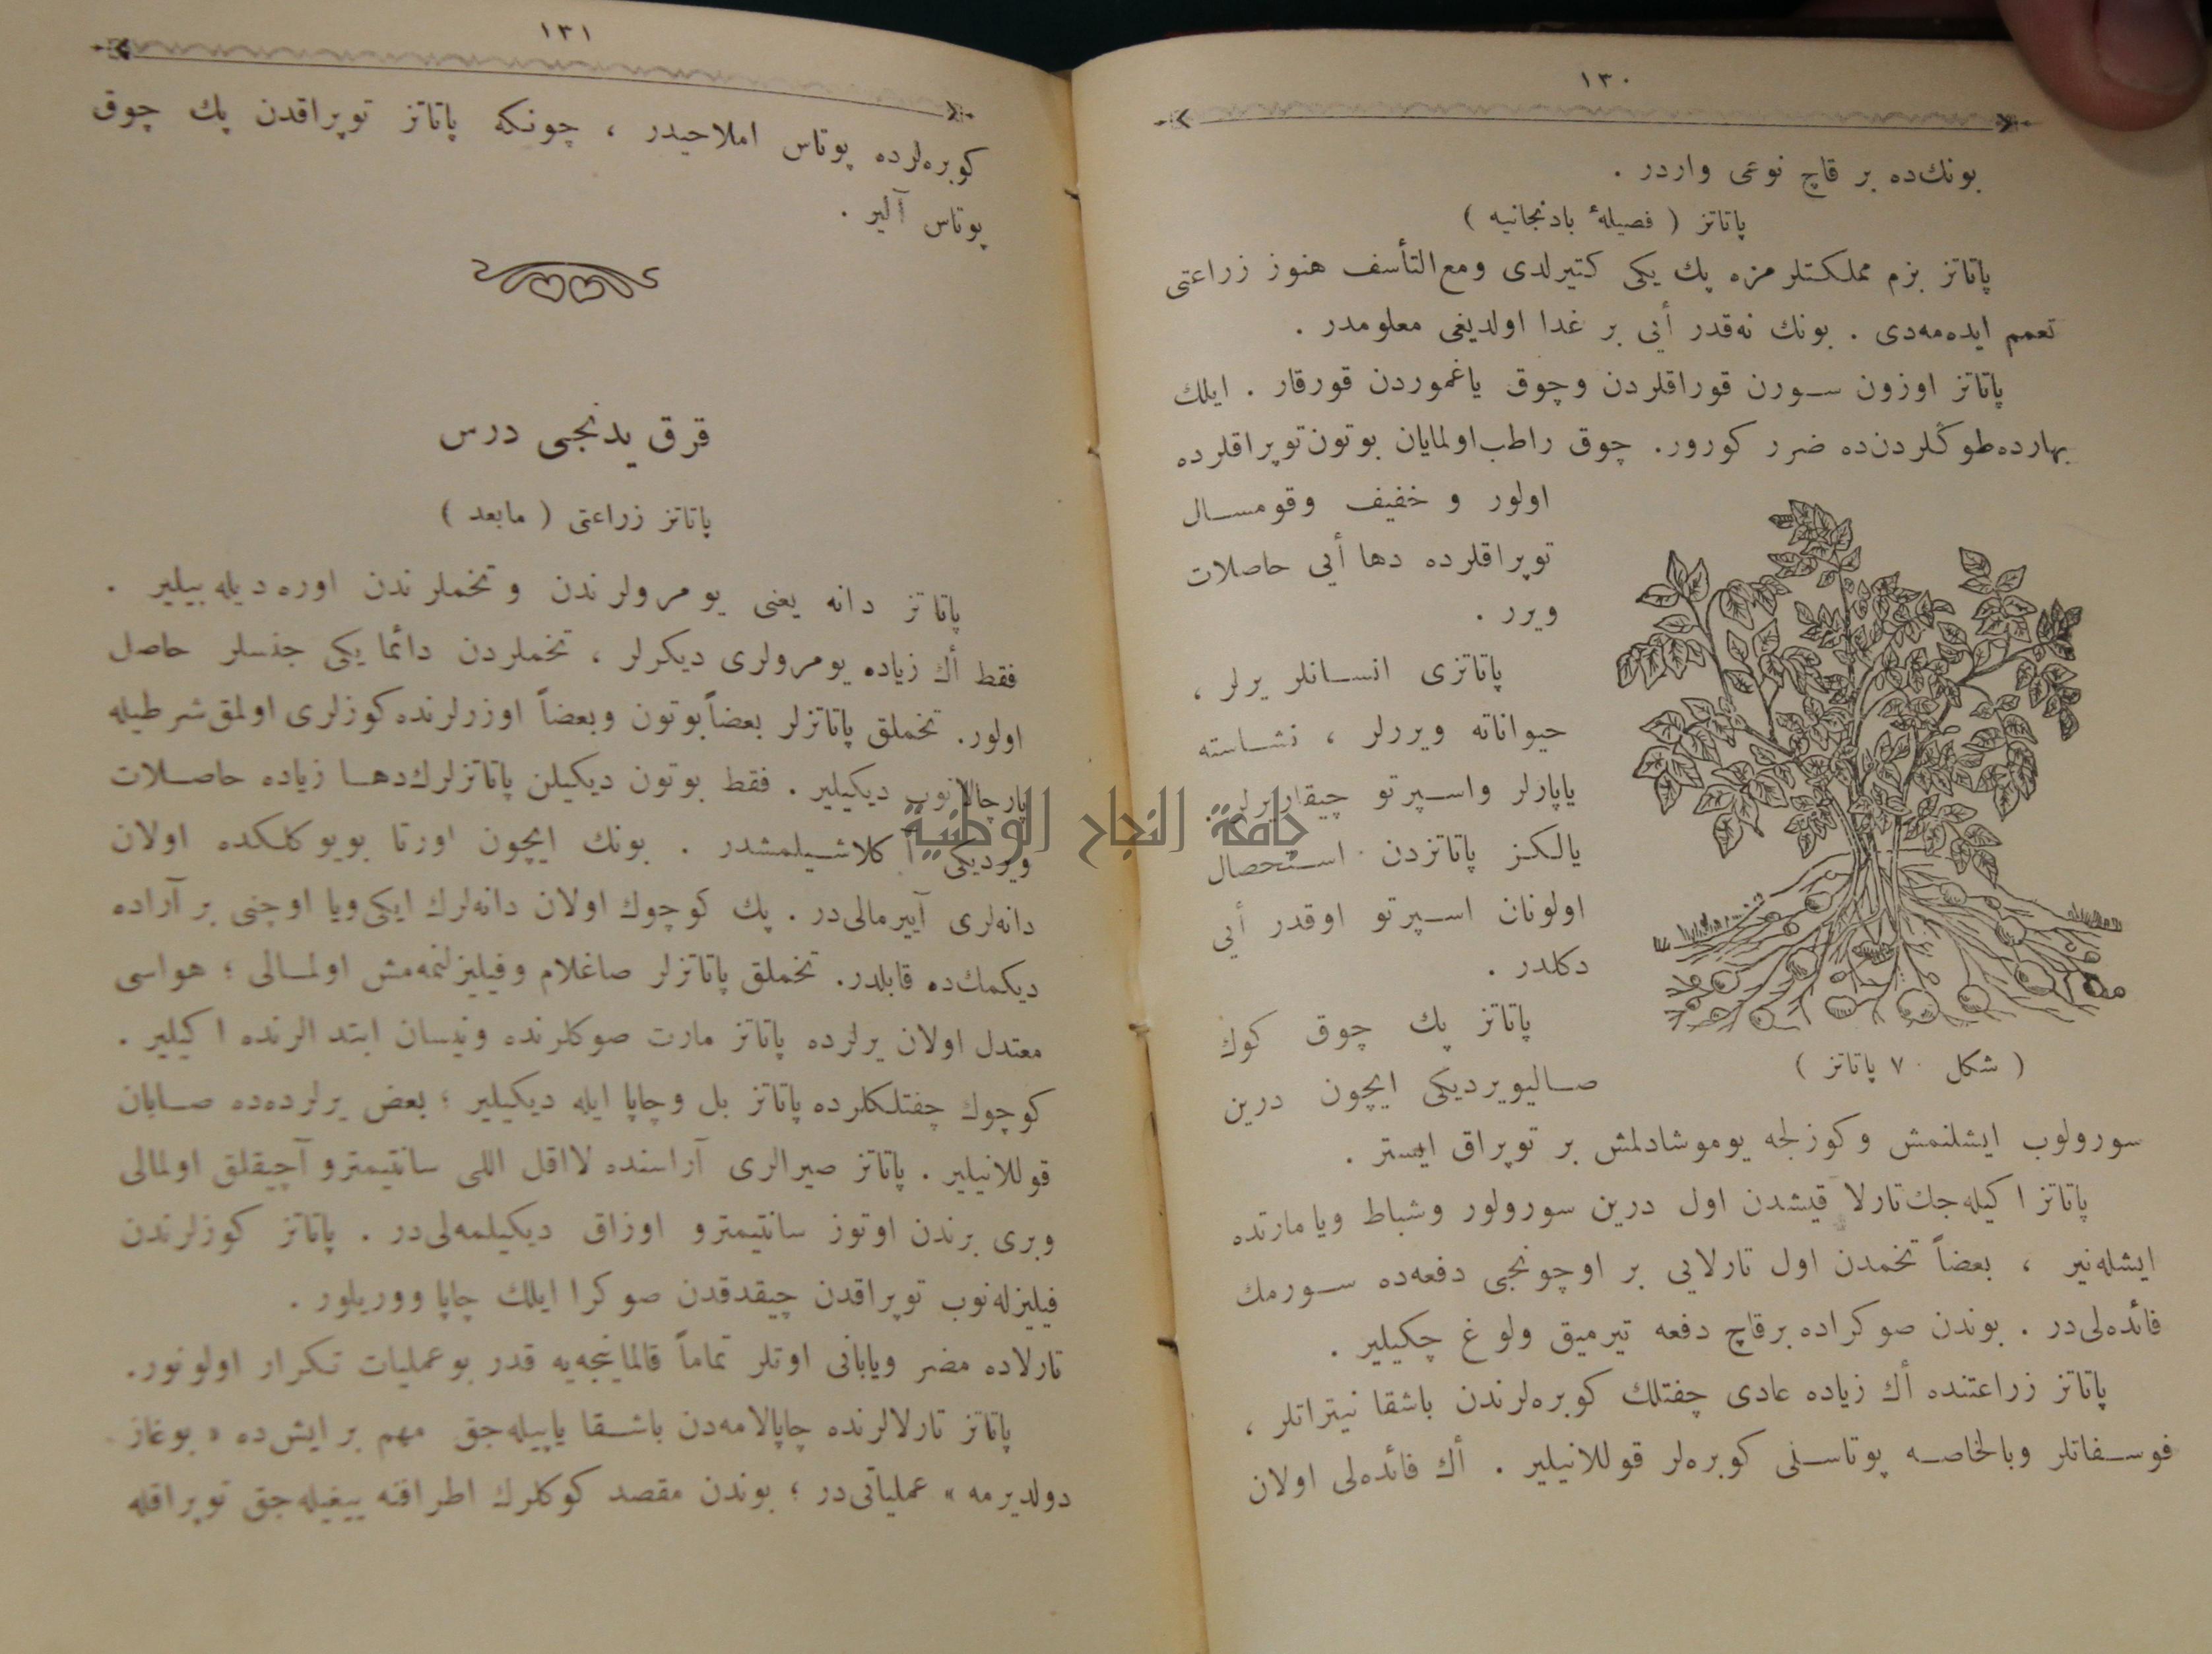 ١٣٠
بونك‌ده بر قاچ نوعی واردر .
پاتاتز ( فصیلهٔ بادنجانیه )
پاتاتز بزم مملكتلرمزه پك یكی كتیرلدی ومع‌التأسف هنوز زراعتی
تعمم ایده‌مه‌دی . بونك نه‌قدر أیی بر غدا اولدیغی معلومدر .
پاتاتز اوزون سورن قوراقلردن وچوق یاغموردن قورقار . ایلك
بهارده‌طوڭلردن‌ده ضرر كورور. چوق راطب‌اولمایان بوتون‌توپراقلرده
اولور و خفیف وقومسال
توپراقلرده دها أیی حاصلات
ویرر .
پاتاتزی انسانلر یرلر ،
حیواناته ویررلر ، نشاسته
یاپارلر واسپرتو چیقاریرلر.
یالكز پاتاتزدن استحصال
اولونان اسپرتو اوقدر أیی
دكلدر .
پاتاتز پك چوق كوك
صالیویردیكی ایچون درین
( شكل ٧٠ پاتاتز )
سورولوب ایشلنمش وكوزلجه یوموشادلمش بر توپراق ایستر .
پاتاتز اكیله‌جك‌تارلا قیشدن اول درین سورولور وشباط ویا مارتده
ایشله‌نیر ، بعضاً تخمدن اول تارلایی بر اوچونجی دفعه‌ده سورمك
فائده‌لی‌در . بوندن صوكراده برقاچ دفعه تیرمیق ولوغ چكیلیر .
پاتاتز زراعتنده أك زیاده عادی چفتلك كوبره‌لرندن باشقا نیتراتلر ،
فوسفاتلر وبالخاصه پوتاسلی كوبره‌لر قوللانیلیر . أك فائده‌لی اولان
١٣١
كوبره‌لرده پوتاس املاحیدر ، چونكه پاتاتز توپراقدن پك چوق
پوتاس آلیر .
قرق یدنجی درس
پاتاتز زراعتی ( مابعد )
پاتاتز دانه یعنی یومرولرندن و تخملرندن اوره‌دیله‌بیلیر .
فقط أك زیاده یومرولری دیكرلر ، تخملردن دائما یكی جنسلر حاصل
اولور. تخملق پاتاتزلر بعضاً بوتون وبعضاً اوزرلرنده كوزلری اولمق‌شرطیله
پارچالانوب دیكیلیر . فقط بوتون دیكیلن پاتاتزلرك‌دها زیاده حاصلات
ویردیكی آكلاشیلمشدر . بونك ایچون اورتا بویوكلكده اولان
دانه‌لری آییرمالی‌در . پك كوچوك اولان دانه‌لرك ایكی‌ویا اوچنی بر آراده
دیكمك‌ده قابلدر. تخملق پاتاتزلر صاغلام وفیلیزلنمه‌مش اولمالی ؛ هواسی
معتدل اولان یرلرده پاتاتز مارت صوكلرنده ونیسان ابتدالرنده اكیلیر .
كوچوك چفتلكلرده پاتاتز بل وچاپا ایله دیكیلیر ؛ بعض یرلرده‌ده صابان
قوللانیلیر . پاتاتز صیرالری آراسنده لااقل اللی سانتیمترو آچیقلق اولمالی
وبری برندن اوتوز سانتیمترو اوزاق دیكیلمه‌لی‌در . پاتاتز كوزلرندن
فیلیزله‌نوب توپراقدن چیقدقدن صوكرا ایلك چاپا ووریلور .
تارلاده مضر ویابانی اوتلر تماماً قالماینجه‌یه قدر بوعملیات تكرار اولونور.
پاتاتز تارلالرنده چاپالامه‌دن باشقا یاپیله‌جق مهم بر ایش‌ده « بوغاز
دولدیرمه » عملیاتی‌در ؛ بوندن مقصد كوكلرك اطرافنه ییغیله‌جق توپراقله
جامعة النجاح الوطنية